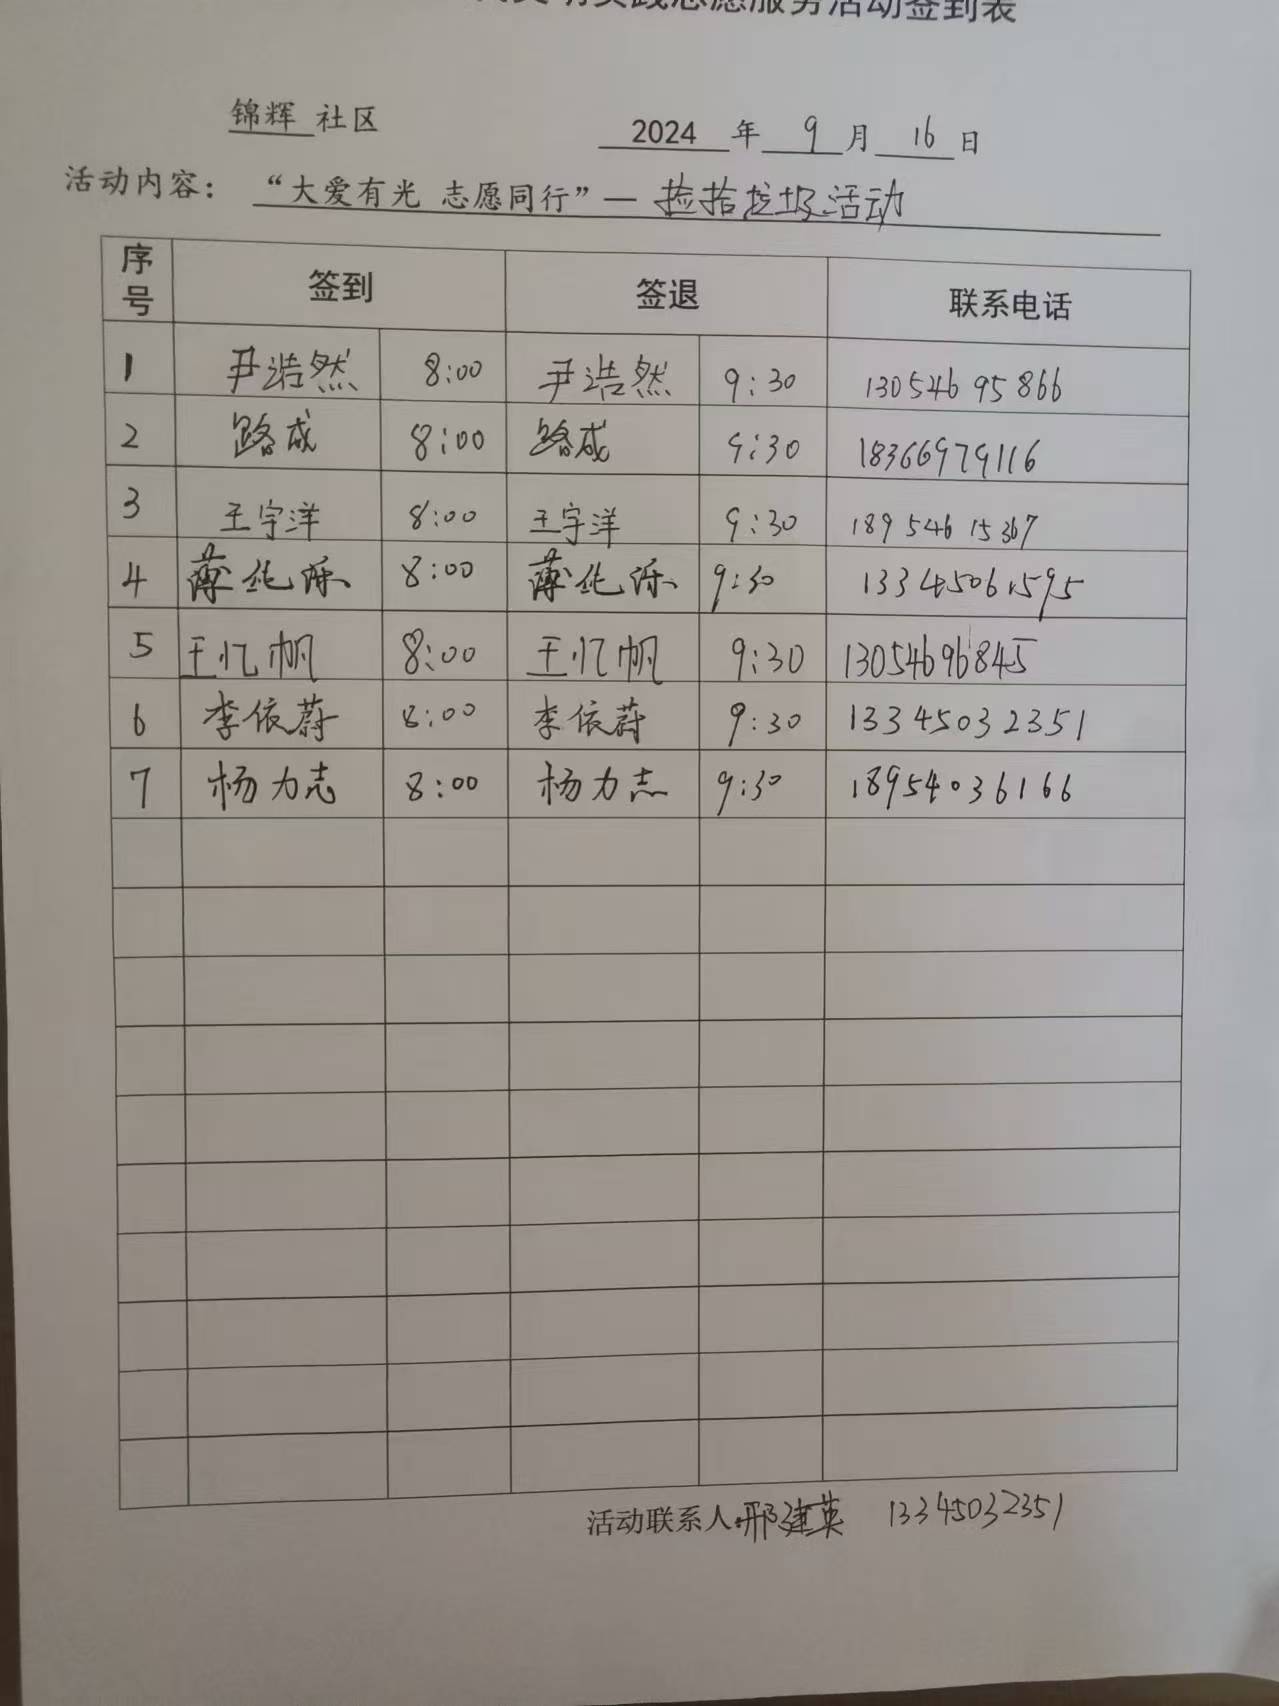 文明实践志愿服务活动签到表
锦辉 社区 2024 年 9 月 16 日
活动内容：“大爱有光 志愿同行”— 捡拾垃圾活动
序号 签到 签退 联系电话
1 尹浩然 8:00 尹浩然 9:30 13054695866
2 路成 8:00 路成 9:30 18366979116
3 王宇洋 8:00 王宇洋 9:30 18954615367
4 8:00 9:30 13345061595
5 王忆帆 8:00 王忆帆 9:30 13054696845
6 李依蔚 8:00 李依蔚 9:30 13345032351
7 杨力志 8:00 杨力志 9:30 18954036166
活动联系人:邢建英 13345032351